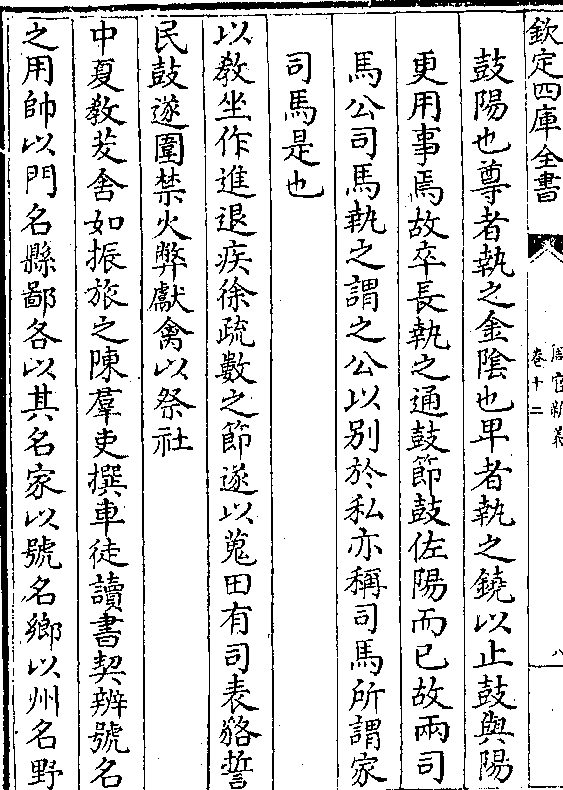 欽定四庫全書
周官新義
卷十二
八
鼓陽也尊者執之金陰也卑者執之鐃以止鼓與陽
更用事焉故卒長執之通鼓節鼓佐陽而已故兩司
馬公司馬執之謂之公以别於私亦稱司馬所謂家
司馬是也
以教坐作進退疾徐疏數之節遂以蒐田有司表貉誓
民鼓遂圍禁火弊獻禽以祭社
中夏教茇舍如振旅之陳羣吏撰車徒讀書契辨號名
之用帥以門名縣鄙各以其名家以號名鄉以州名野